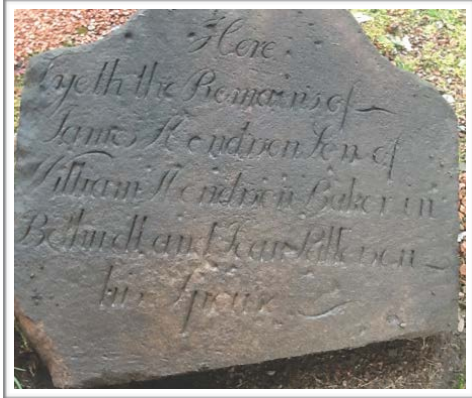 Here
Lyeth the Remains of
James Hendrson Son of
William Hendrson Baker in
and Jean Patterson
his Spous